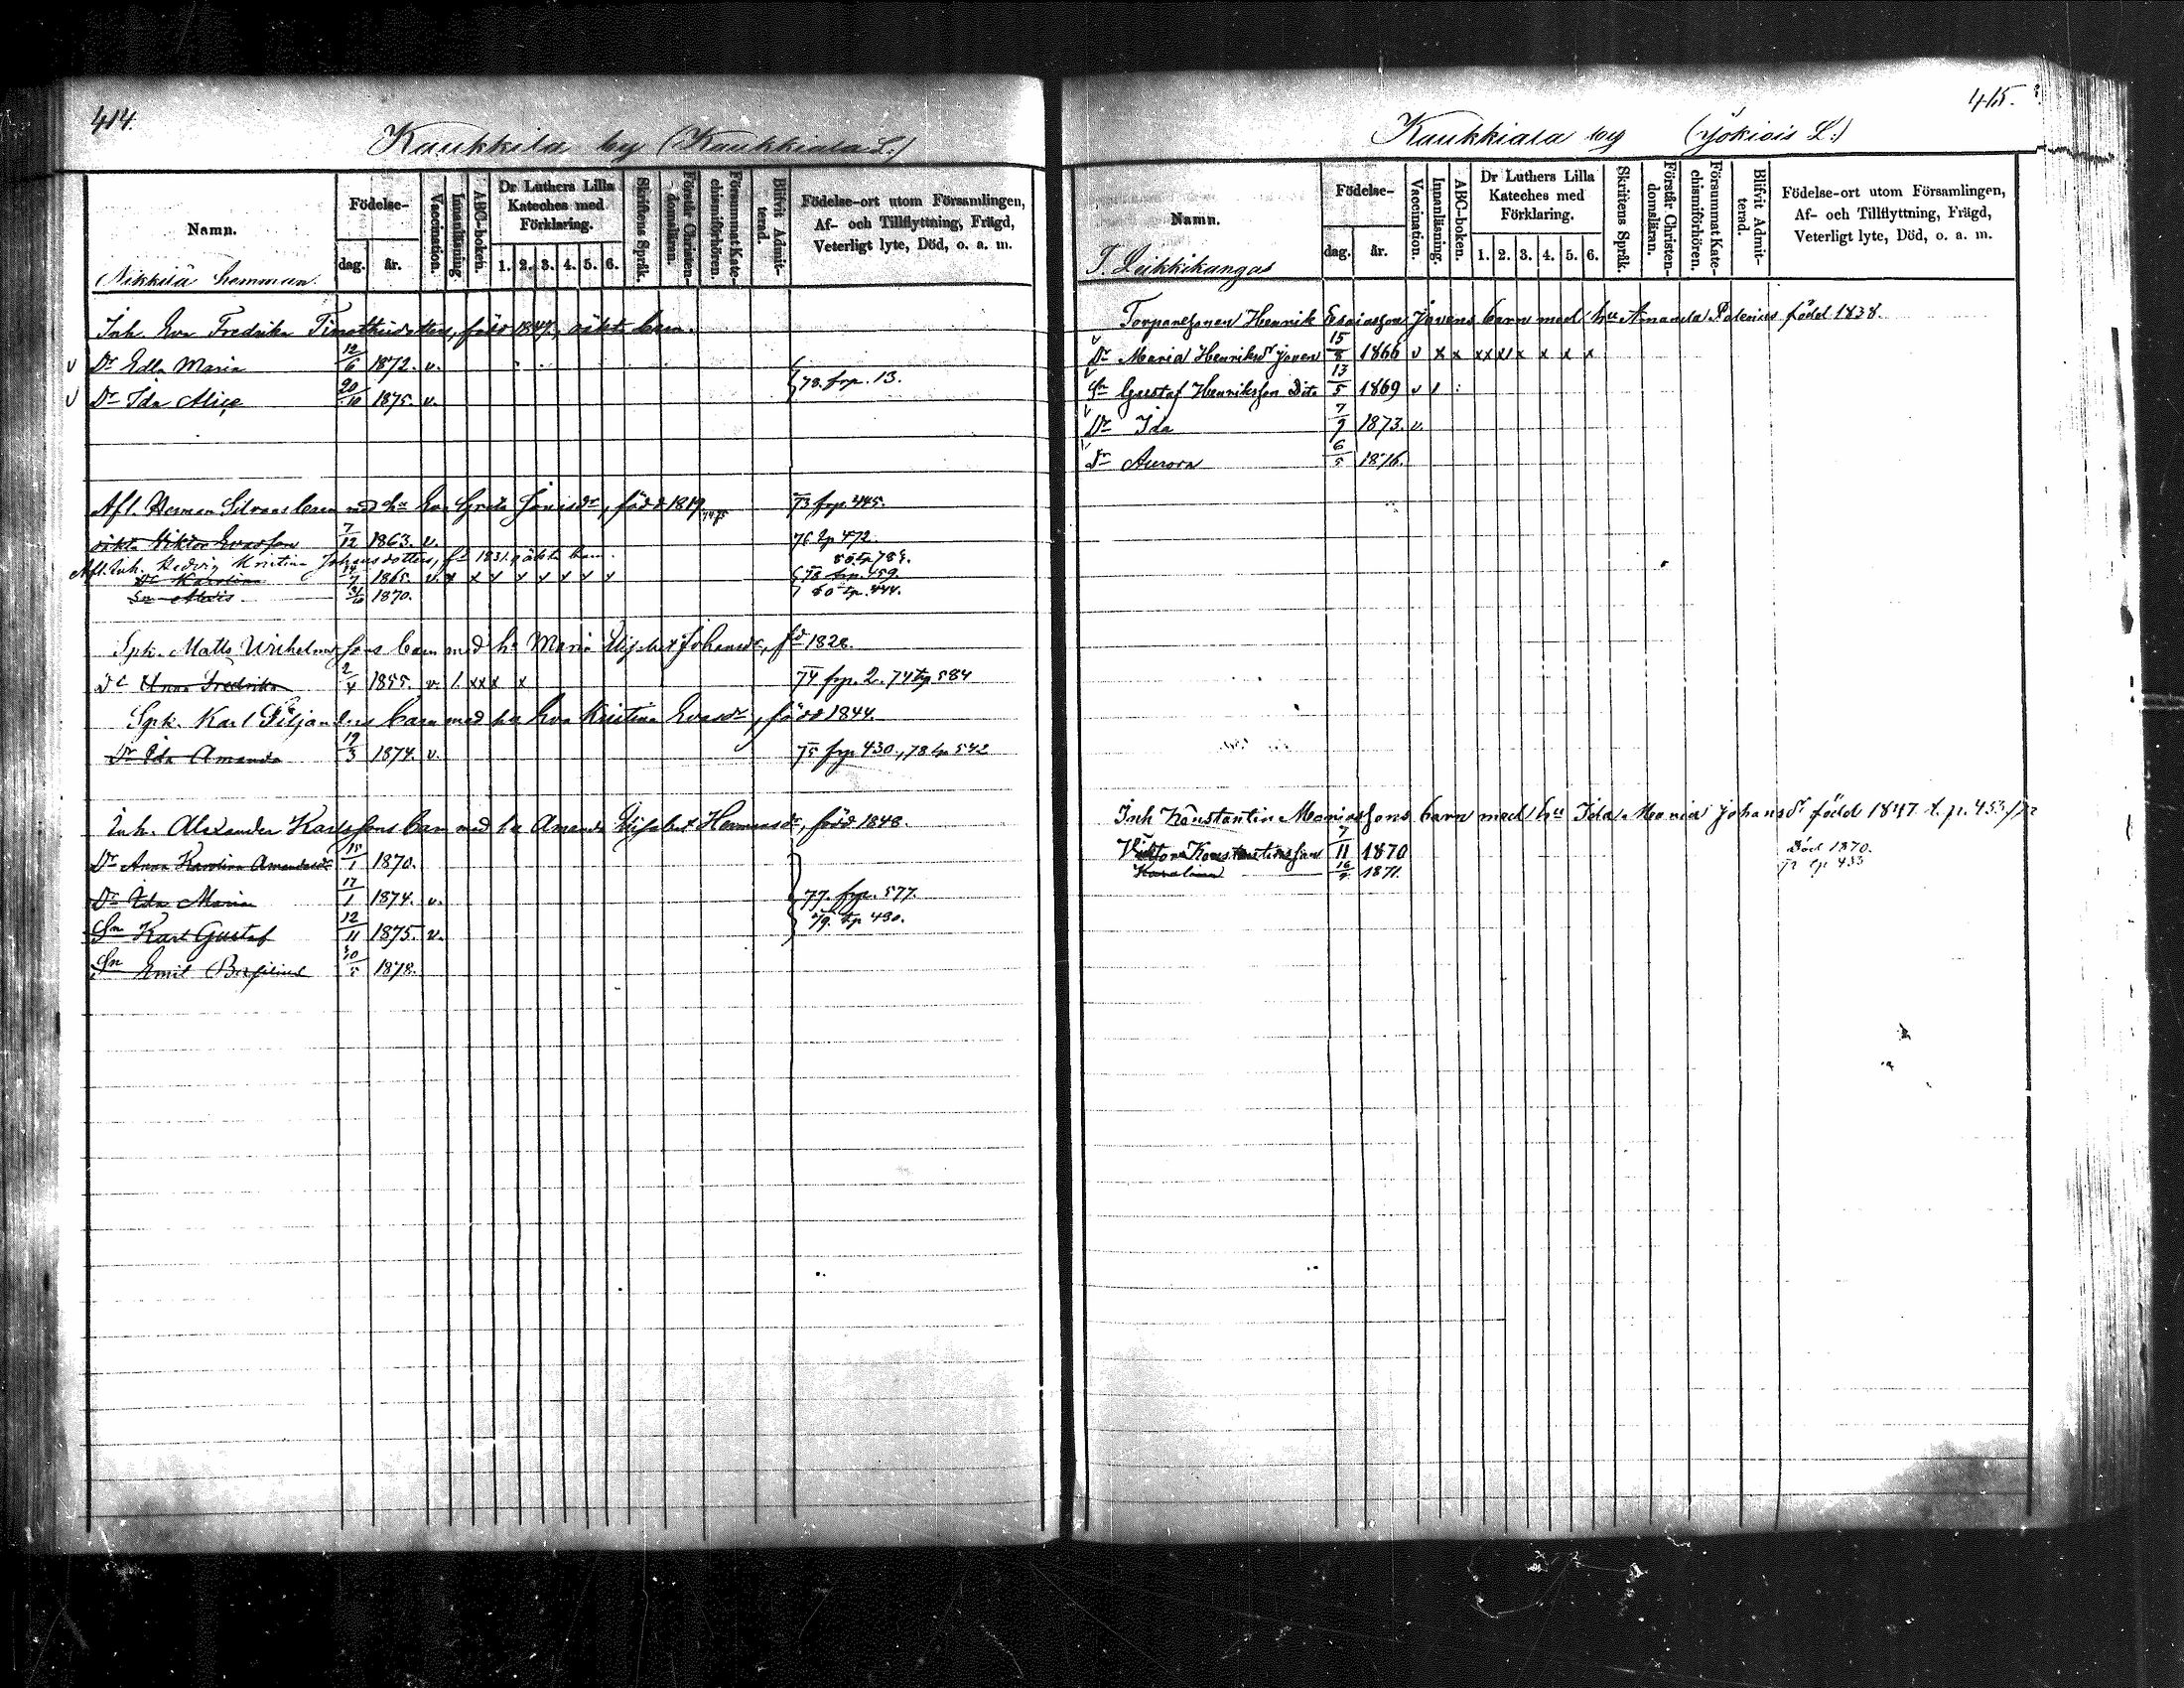 414.
Kaukkila by (Kaukkiala L:)
Namn.
Födelse-
dag.
år.
Vaccination.
Innanläsning.
ABC-boken.
Dr Luthers Lilla
Kateches med
Förklaring.
1. 2. 3. 4. 5. 6.
Skriftens Språk.
Förstår Christen-
domsläran.
Försummat Kate-
chismiförhören.
Blifvit Admit-
terad.
Födelse-ort utom Församlingen,
Af- och Tillflyttning, Frägd,
Veterligt lyte, Död, o. a. m.
Nikkilä hemman
Inh. Eva Fredrika född 1847, oäkta barn.
v Dr Edla Maria 12/6 1872. v.
v Dr Ida Alice 20/10 1875. v. 78. frp. 13.
Afl. Herman barn med hu Eva Greta född 1819 73 frp. 445.
oäkta Viktor Evasson 7/12 1863. v. 76 tp 472
Afl. Inh. Hedvig Kristina Johansdotters, fd 1831. oäkta barn.
Dr Karolina 1865. v. x x x x x x x x 78 frp. 459.
Sn 1870. 80 tp. 444.
Spk. Matts Wilhelmssons barn med hu Maria Johansdr, fd 1826.
Dr Anna Fredrika 2/4 1855. v. 1. x x x x 74 frp. 2. 74 tp 584
Spk. Karl barn med hu Eva Kristina Evasdr, född 1844.
Dr Ida Amanda 19/3 1874. v. 75 frp 430., 78 tp 542
Inh. Alexander Karlssons barn med hu Amanda Elisabet Hermansdr, född 1848.
Dr Anna Karolina Amandasdr 15/1 1870.
Dr Ida Maria 17/1 1874. v. 77. frp. 577.
Sn Karl Gustaf 12/11 1875. v. 79. tp 430.
Sn Emil 1878.
415.
Kaukkiala by (Jokiois L:)
Namn.
Födelse-
dag.
år.
Vaccination.
Innanläsning.
ABC-boken.
Dr Luthers Lilla
Kateches med
Förklaring.
1. 2. 3. 4. 5. 6.
Skriftens Språk.
Förstår Christen-
domsläran.
Försummat Kate-
chismiförhören.
Blifvit Admit-
terad.
Födelse-ort utom Församlingen,
Af- och Tillflyttning, Frägd,
Veterligt lyte, Död, o. a. m.
T. Leikkikangas
Torparesonen Henrik Esaiasson Jovens barn med hu Amanda Polenius född 1838.
v Dr Maria Henriksdr Joven 15/8 1866 v x x x x x x x x x
v Sn Gustaf Henriksson Dito 13/5 1869 v 1
v Dr Ida 7/9 1873. v.
v Dr Aurora 6/5 1876.
Inh Konstantin Mariassons barn med hu Ida Maria Johansdr född 1847 t. p. 453/72
Viktor Konstantinsson 7/11 1870 Död 1870.
Karolina 1871. 72 tp 453